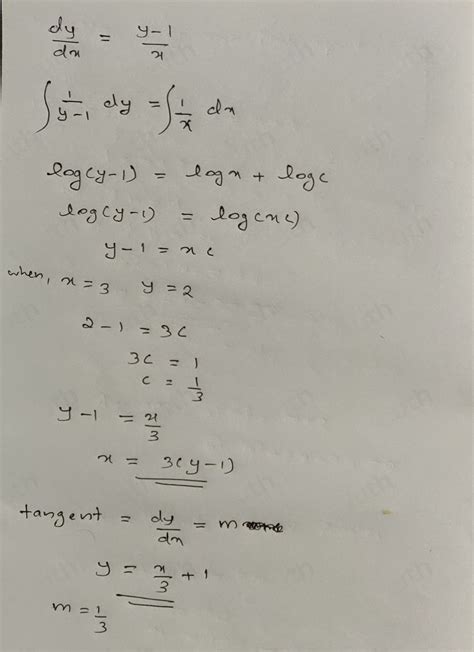 dy/dx = y-1/x
∫ 1/y-1 dy = ∫ 1/x dx
log(y-1) = logx + logc
log(y-1) = log(xc)
y-1 = xc
when, x=3 y=2
2-1 = 3c
3c = 1
c = 1/3
y-1 = x/3
x = 3(y-1)
tangent = dy/dx = m
y = x/3 + 1
m = 1/3